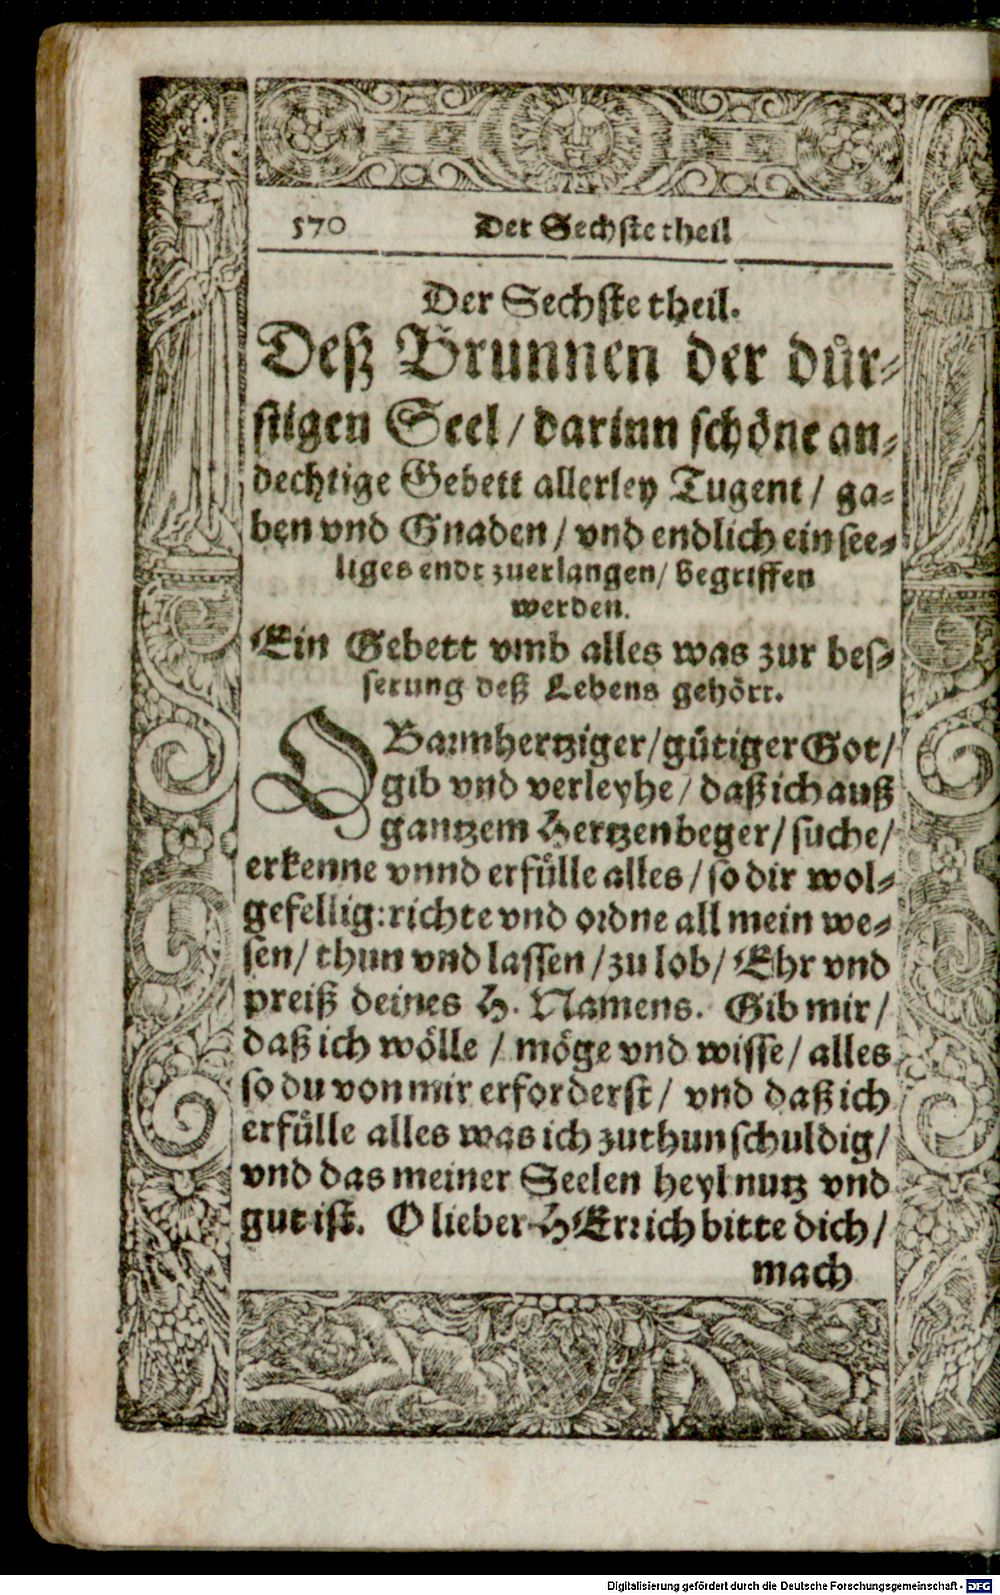 570 Der Sechste theil
Der Sechste theil.
Deß Brunnen der důr-
stigen Seel / darinn schöne an-
dechtige Gebett allerley Tugent / ga-
ben vnd Gnaden / vnd endlich ein see-
liges endt zuerlangen / begriffen
werden.
Ein Gebett vmb alles was zur bes-
serung deß Lebens gehört.
O Barmhertziger / gůtiger Got /
gib vnd verleyhe / daß ich auß
gantzem Hertzen beger / suche /
erkenne vnnd erfůlle alles / so dir wol-
gefellig: richte vnd ordne all mein we-
sen / thun vnd lassen / zu lob / Ehr vnd
preiß deines H. Namens. Gib mir /
daß ich wölle / möge vnd wisse / alles
so du von mir erforderst / vnd daß ich
erfůlle alles was ich zuthun schuldig /
vnd das meiner Seelen heyl nutz vnd
gut ist. O lieber HErr ich bitte dich /
mach
Digitalisierung gefördert durch die Deutsche Forschungsgemeinschaft - DFG